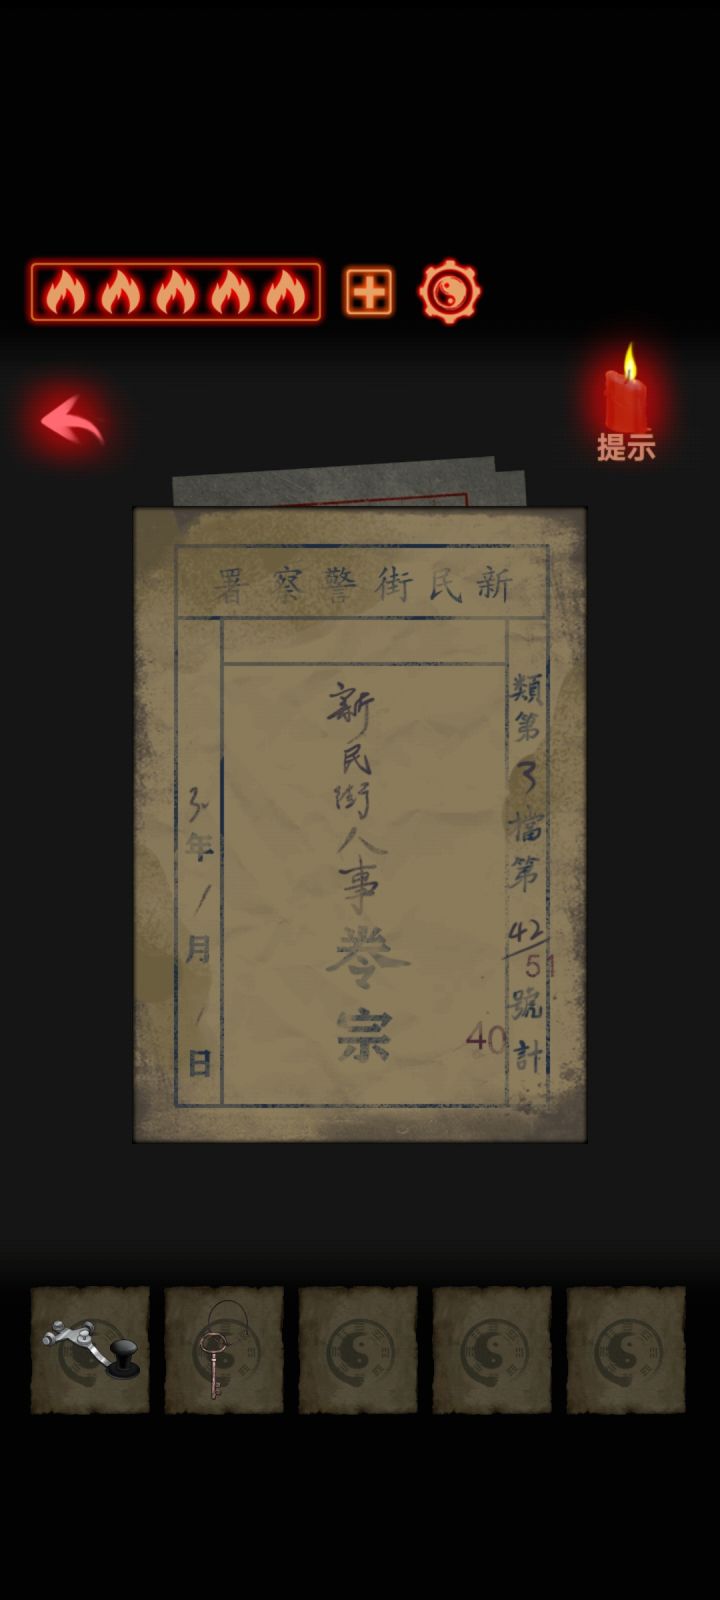 提示
新民街警察署
類第3檔第42/51號計
新民街人事卷宗
40
3年1月1日